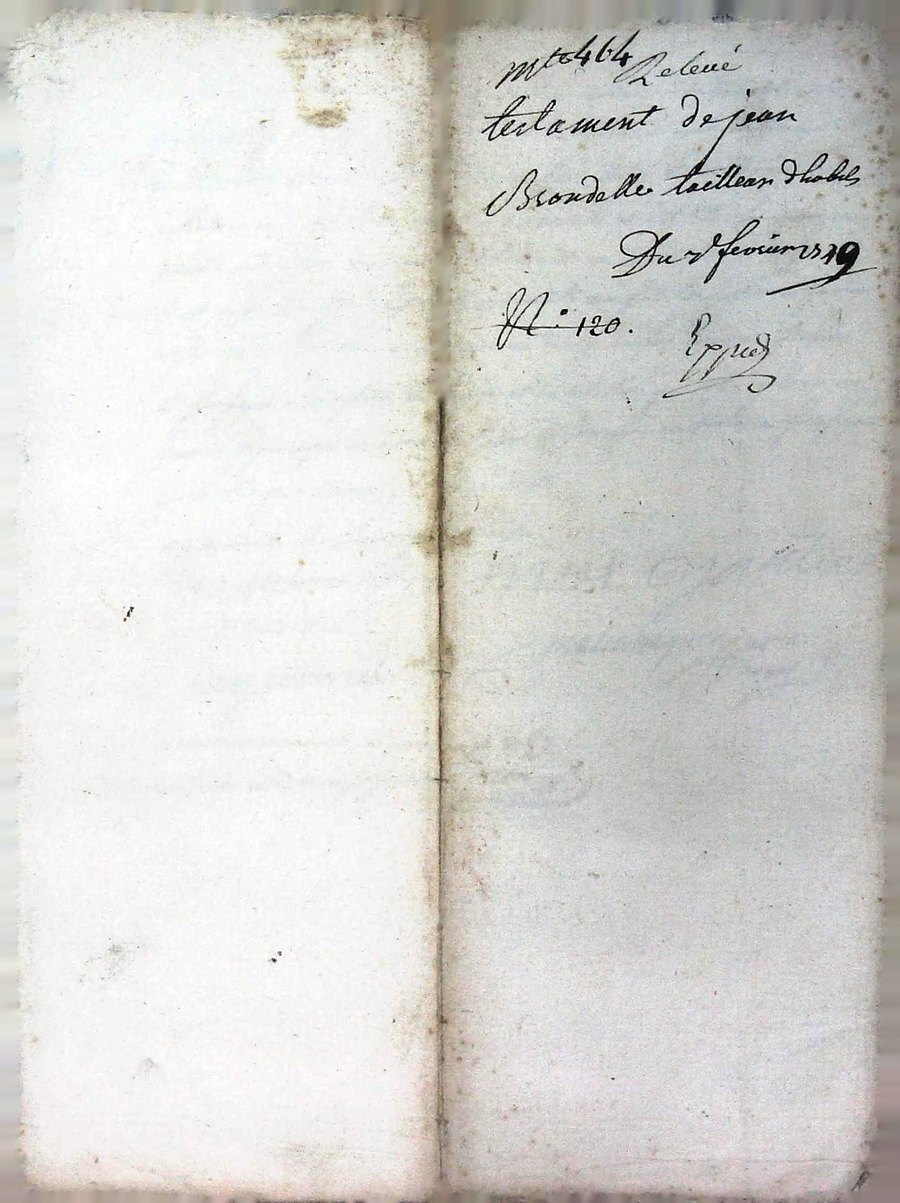 Mte 464 Relevé
testament de jean
Brondelle tailleur dhabits
Du 2e fevrier
N.° 120.
Exped